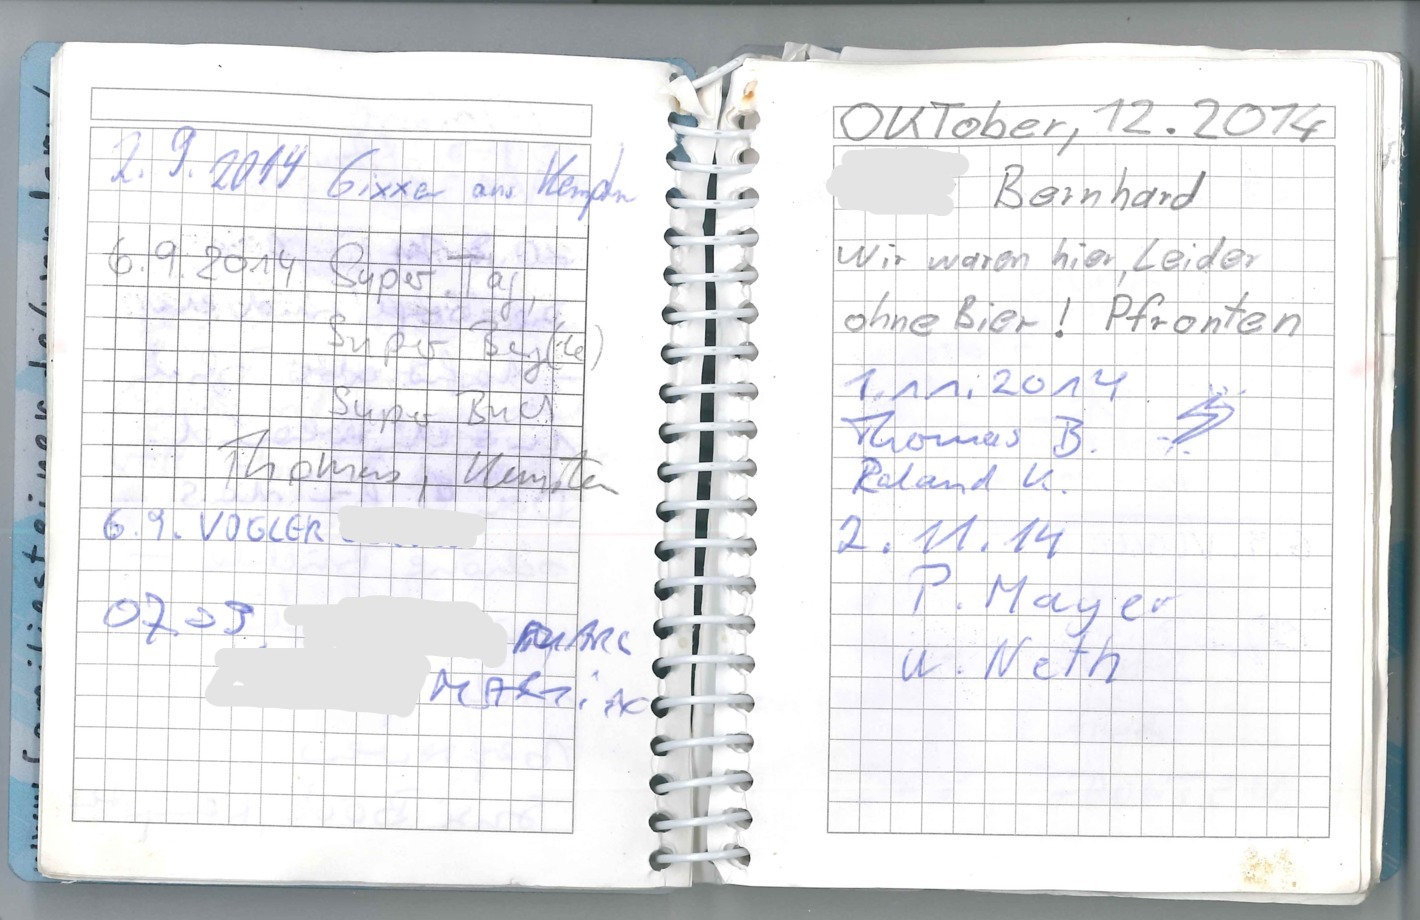 2.9.2014 Gixxer aus Kempten
6.9.2014 Super Tag,
Super Berg(le)
Super Buch
Thomas, Kempten
6.9. VOGLER
07.09.
MARTIN
OKTober, 12.2014
Bernhard
Wir waren hier, Leider
ohne Bier! Pfronten
1.11.2014
Thomas B.
Roland K.
2.11.14
P. Mayer
W. Neth